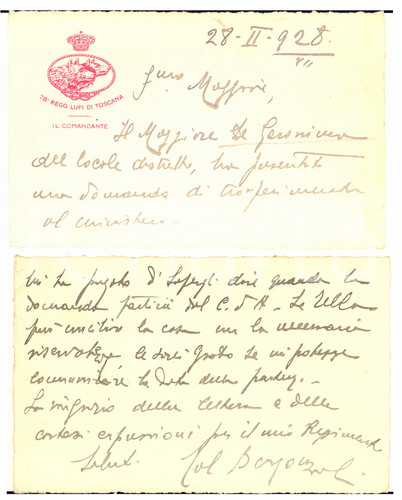 78° REGG. LUPI DI TOSCANA
IL COMANDANTE
28-II-928.
VII
Maggiore,
Il Maggiore De
del locale distretto, ha presentato
una domanda di trasferimento
al ministero.
mi ha pregato di dire quando la
domanda partirà dal C. d'A. Se Ella
può la cosa con la necessaria
riservatezza le sarei grato se mi potesse
comunicare la data della
La ringrazio della lettera e delle
cortesi espressioni per il mio Reggimento
Saluti Col Bergonzoli